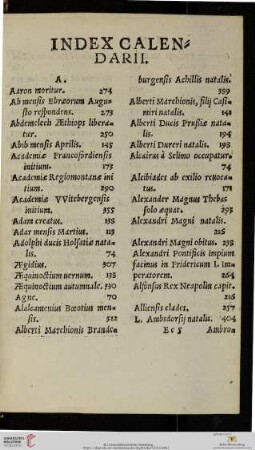 INDEX CALEN=
DARII.
A.
Aaron moritur. 274
Ab mensis Ebræorum Augu-
sto respondens. 273
Abdemelech Æthiops libera-
tur. 250
Abib mensis Aprilis. 145
Academiæ Francofordiensis
initium. 173
Academiæ Regiomontanæ ini
tium. 290
Academiæ VVitebergensis
initium. 355
Adam creatus. 135
Adar mensis Martius. 119
Adolphi ducis Holsatiæ nata-
lis. 74
Ægidius. 307
Æquinoctium vernum. 135
Æquinoctium autumnale. 330
Agne. 70
Alalcomenius Bœotius men-
sis. 522
Alberti Marchionis Brande-
burgensis Achillis natalis.
359
Alberti Marchionis, filij Casi-
miri natalis. 142
Alberti Ducis Prussiæ nata-
lis. 194
Alberti Dureri natalis. 193
Alcairus à Selimo occupatur.
74
Alcibiades ab exilio reuoca-
tus. 171
Alexander Magnus Thebas
solo æquat. 393
Alexandri Magni natalis.
216
Alexandri Magni obitus. 293
Alexandri Pontificis impium
facinus in Fridericum I. im
peratorem. 264
Alfinsus Rex Neapolim capit.
216
Alliensis clades. 257
L. Ambsdorfij natalis. 404
E c 5 Ambro-